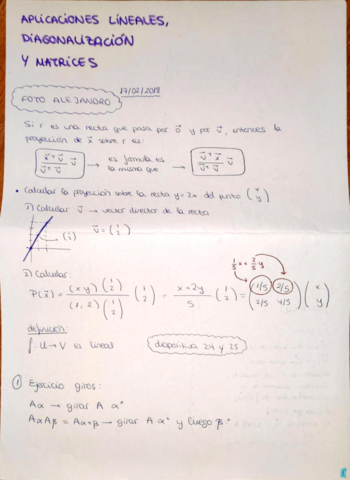 APLICACIONES LINEALES,
DIAGONALIZACIÓN
Y MATRICES
FOTO ALEJANDRO 17/02/2018
Si r es una recta que pasa por 0⃗ y por v⃗, entonces la
proyección de x⃗ sobre r es:
(x⃗·v⃗)/(v⃗·v⃗) v⃗ → es fórmula es la misma que → (v⃗·x⃗)/(v⃗·v⃗) v⃗
• Calcular la proyección sobre la recta y=2x del punto (x y)
1) Calcular v⃗ → vector director de la recta
v⃗ = (1 2)
1/5 x + 2/5 y
2) Calcular:
P(x⃗) = (x y)(1 2) / (1, 2)(1 2) (1 2) = (x+2y)/5 · (1 2) = (1/5 2/5 2/5 4/5)(x y)
definición:
f: U→V es lineal diapositiva 24 y 25
① Ejercicio giros:
Aα → girar A α°
AαAβ = Aα+β → girar A α° y luego β°